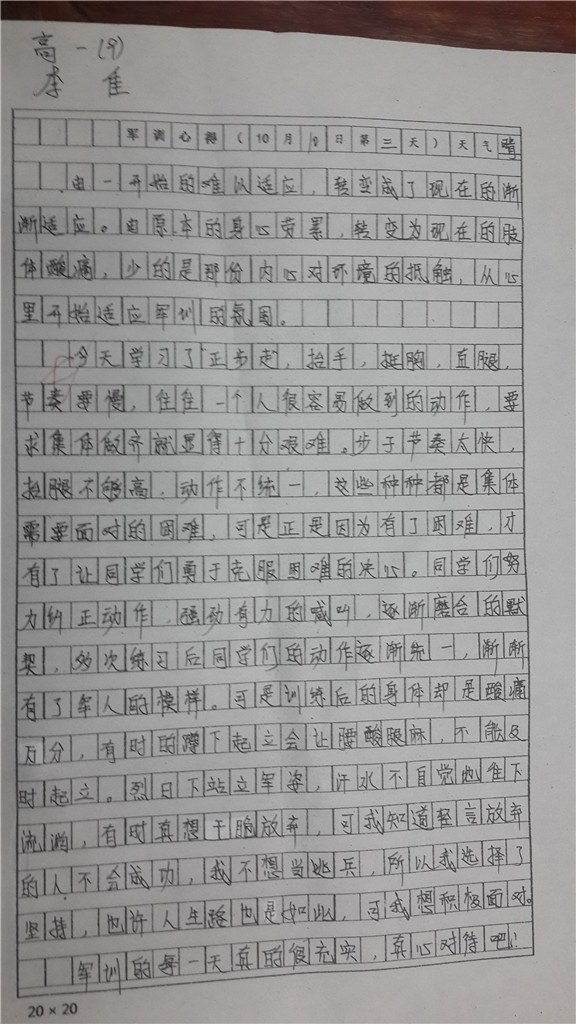 高一(9)
李佳
军训心得(10月9日第三天)天气晴
由一开始的难以适应,转变成了现在的渐
渐适应。由原本的身心劳累,转变为现在的肢
体酸痛,少的是那份内心对环境的抵触,从心
里开始适应军训的氛围。
今天学习了"正步走",抬手,挺胸,直腿,
节奏要慢,往往一个人很容易做到的动作,要
求集体做齐就显得十分艰难。步于节奏太快,
抬腿不够高,动作不统一,这些种种都是集体
需要面对的困难,可是正是因为有了困难,才
有了让同学们勇于克服困难的决心。同学们努
力纠正动作,强劲有力的喊叫,逐渐磨合的默
契,多次练习后同学们的动作逐渐统一,渐渐
有了军人的模样。可是训练后的身体却是酸痛
万分,有时的蹲下起立会让腰酸腿麻,不能及
时起立。烈日下站立军姿,汗水不自觉地往下
流淌,有时真想干脆放弃,可我知道轻言放弃
的人不会成功,我不想当逃兵,所以我选择了
坚持,也许人生路也是如此,可我想积极面对。
军训的每一天真的很充实,真心对待吧!
20×20